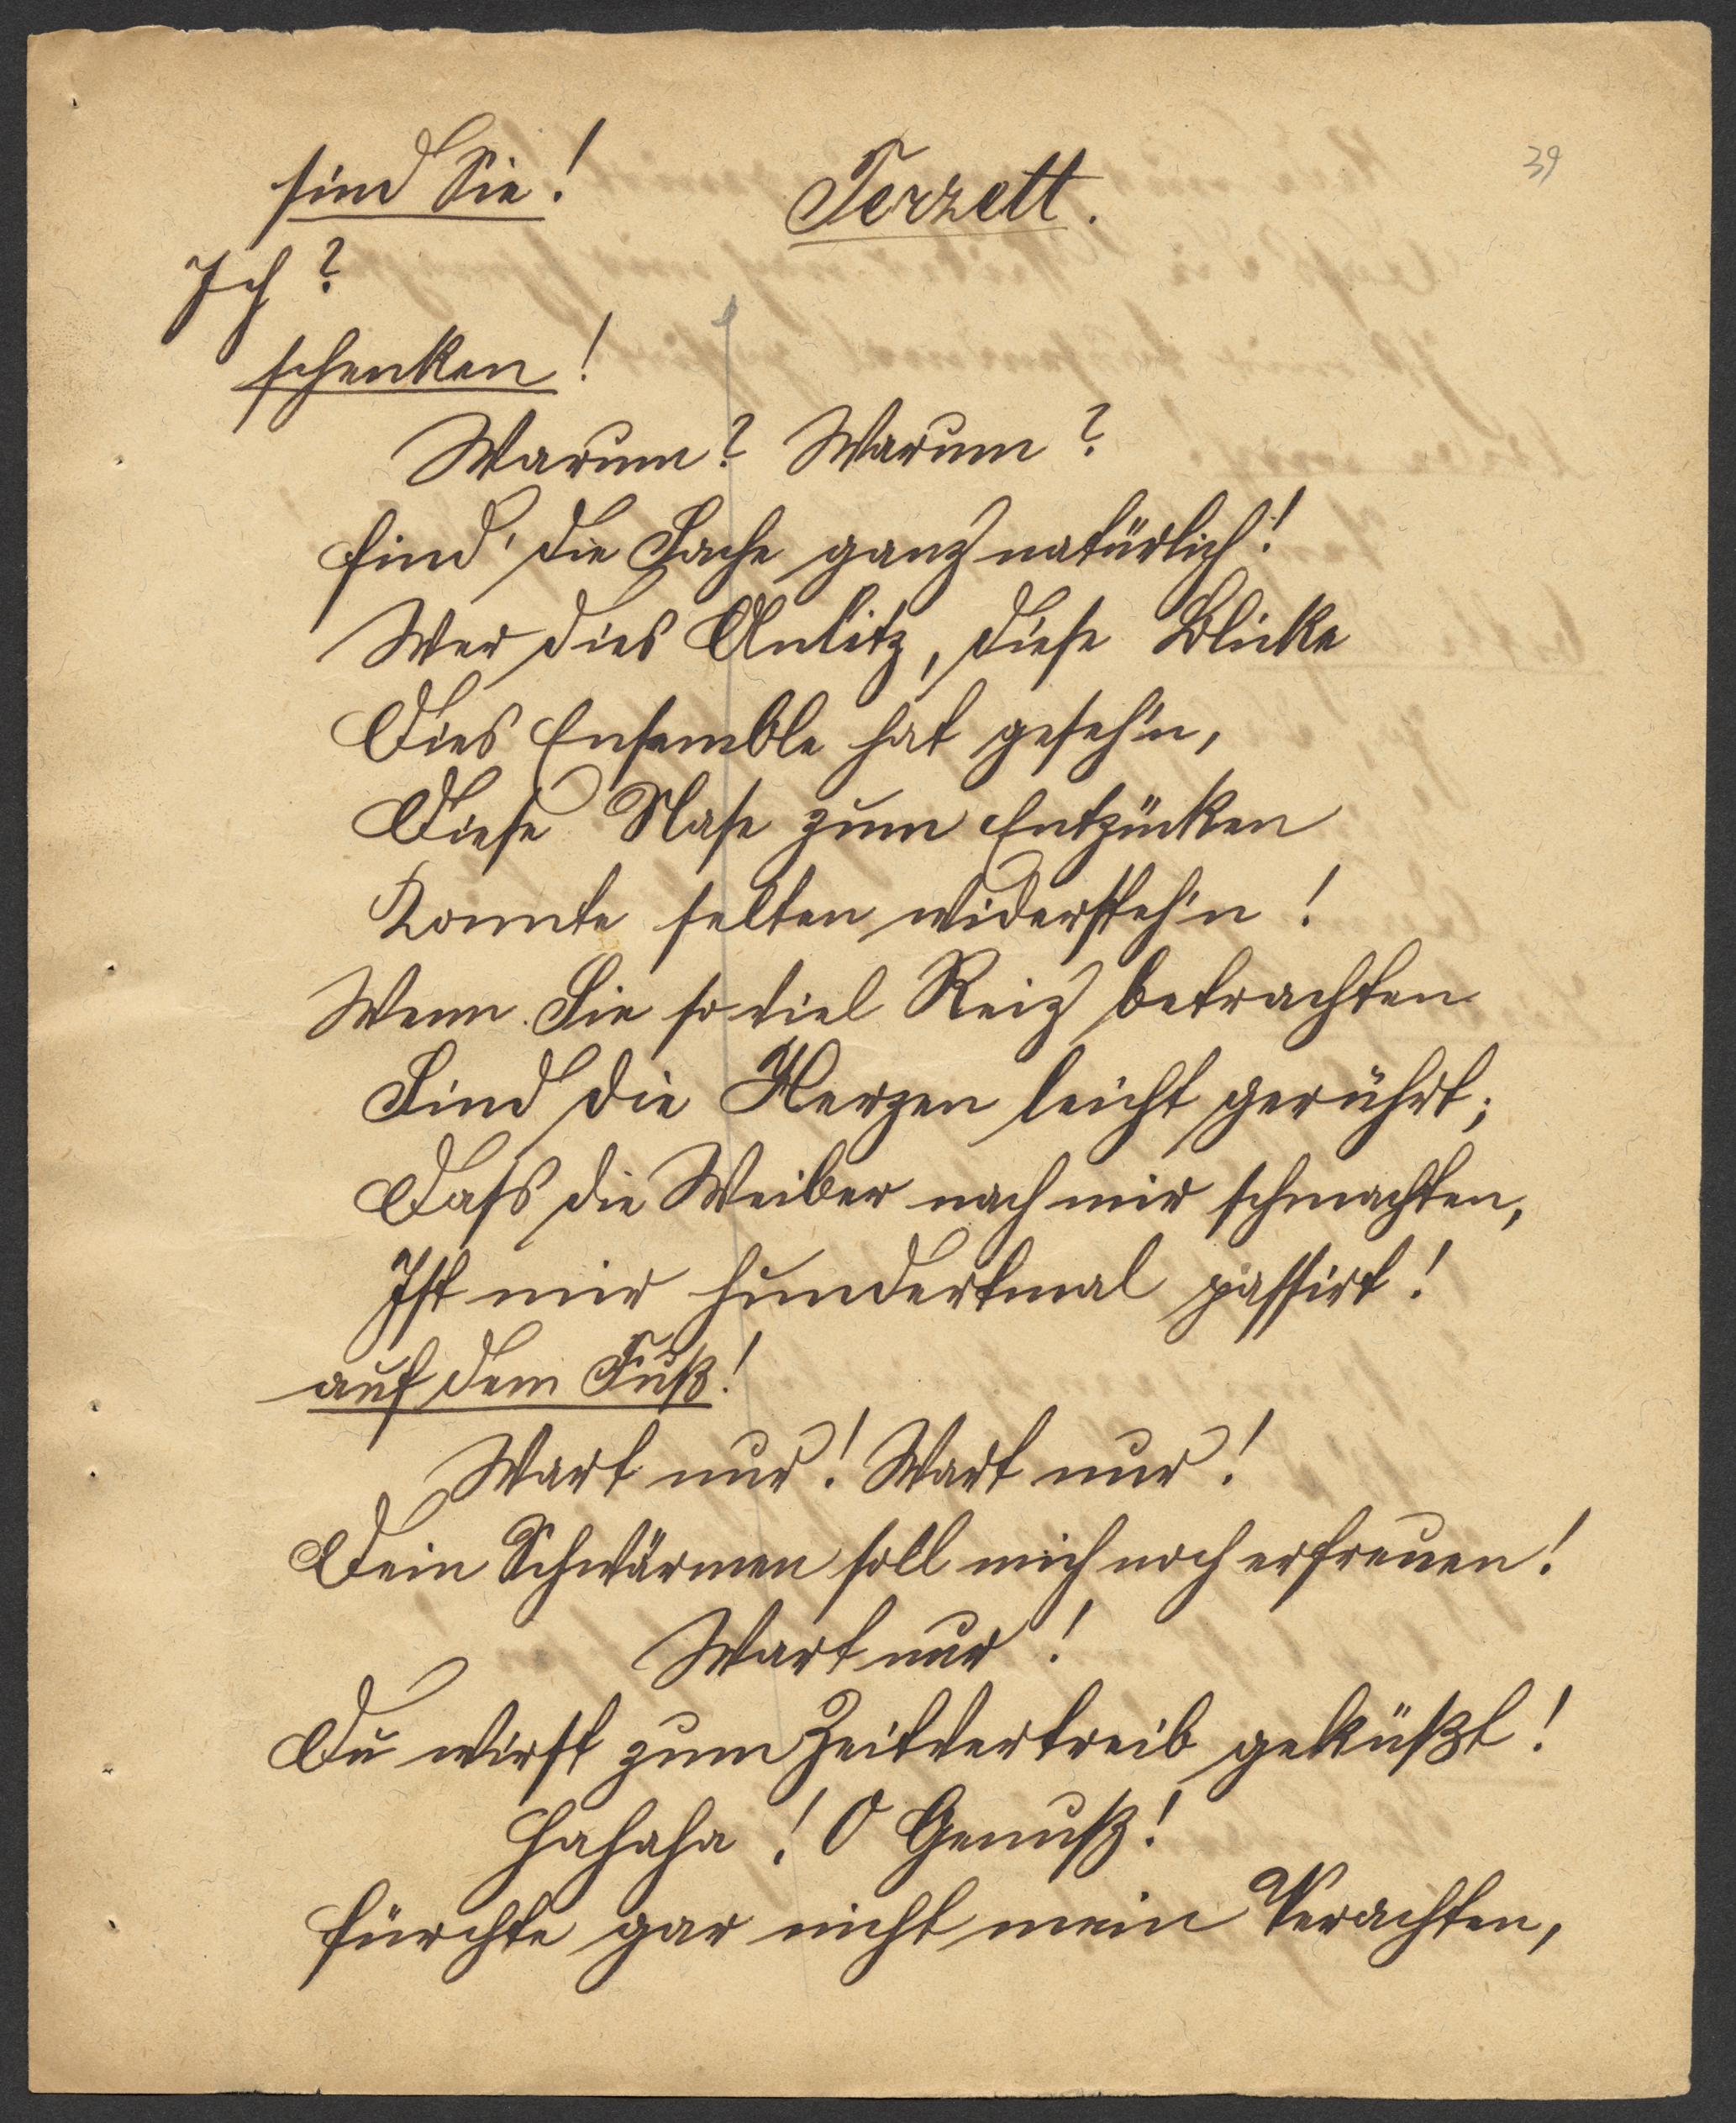 sind Sie!
Terzett.
39
Ich?
schenken!
Warum? Warum?
find' die Sache ganz natürlich!
Wer dies Anlitz, diese Blicke
Dies Ensemble hat geseh'n,
Diese Nase zum Entzücken
Konnte selten widersteh'n!
Wenn Sie so viel Reiz betrachten
Sind die Herzen leicht gerührt;
Dass die Weiber nach mir schmachten,
Ist mir hundertmal passirt!
auf dem Fuß!
Wart nur! Wart nur!
Dein Schwärmen soll mich noch erfreuen!
Wart nur!
Du wirst zum Zeitvertreib geküßt!
Hahaha! O Genuß!
fürchte gar nicht mein Verachten,